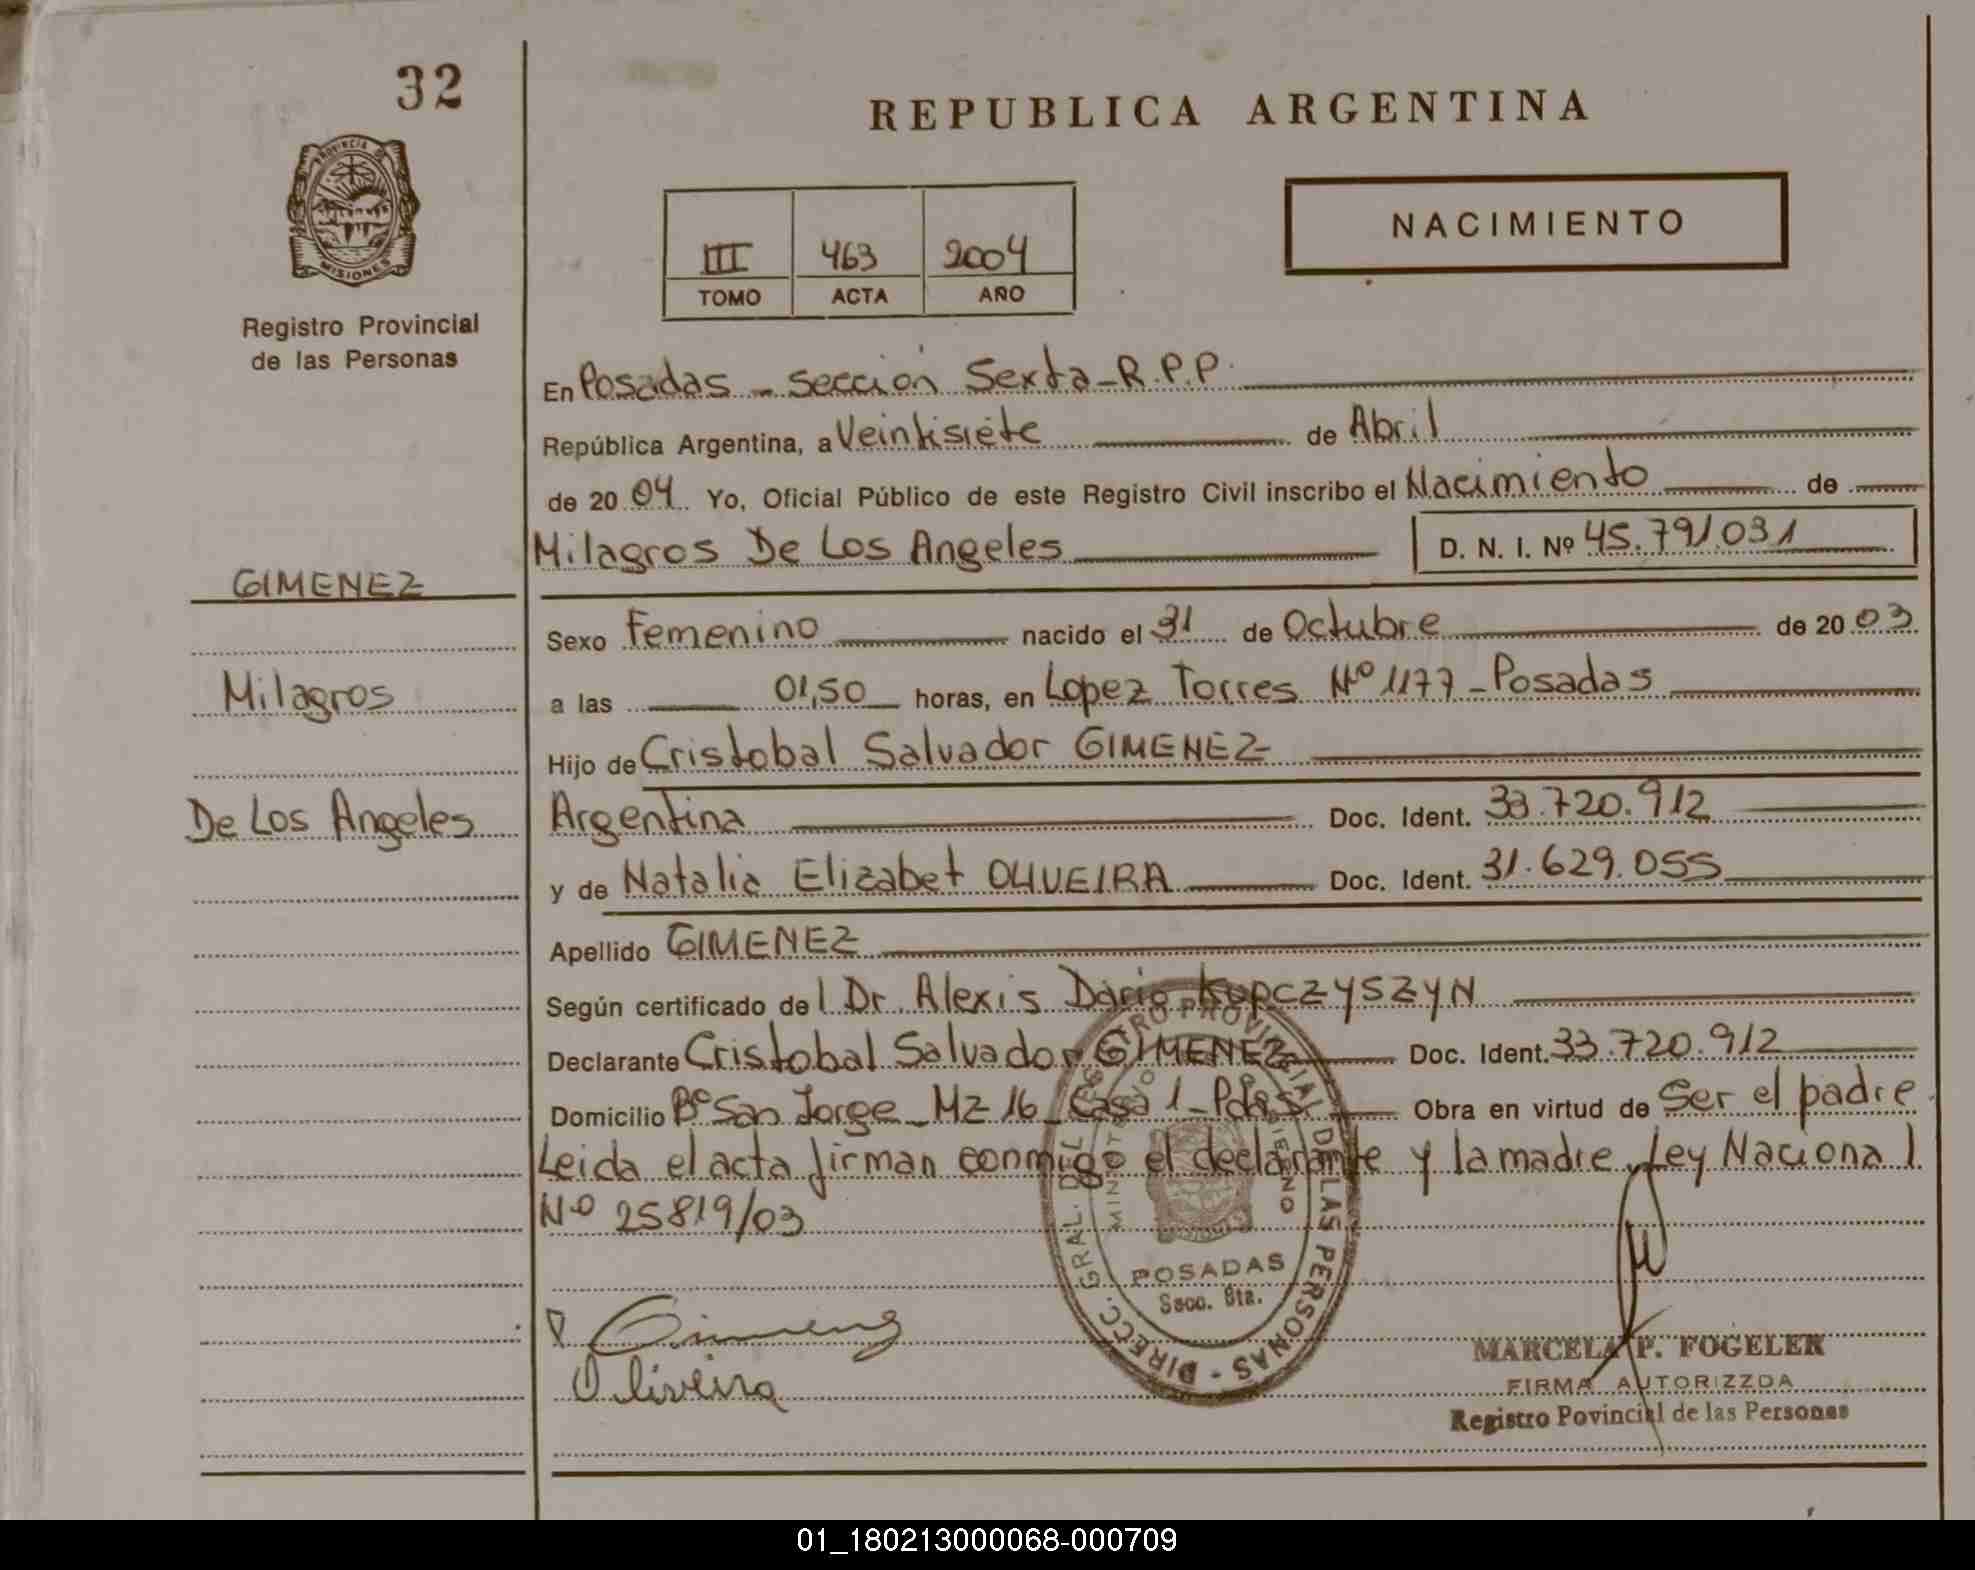 32
REPUBLICA ARGENTINA
PROVINCIA DE
MISIONES
Registro Provincial
de las Personas
NACIMIENTO
III 463 2004
TOMO ACTA AÑO
En Posadas - sección Sexta - R.P.P.
República Argentina, a Veintisiete de Abril
de 2004 Yo, Oficial Público de este Registro Civil inscribo el Nacimiento de
Milagros De Los Angeles D. N. I. Nº 45.791.031
GIMENEZ
Sexo Femenino nacido el 31 de Octubre de 2003
Milagros
a las 01,50 horas, en Lopez Torres Nº 1177 - Posadas
Hijo de Cristobal Salvador GIMENEZ
De Los Angeles
Argentina Doc. Ident. 33.720.912
y de Natalia Elizabet OLIVEIRA Doc. Ident. 31.629.055
Apellido GIMENEZ
Según certificado del Dr. Alexis Dario KupczySZyN
Declarante Cristobal Salvador GIMENEZ Doc. Ident. 33.720.912
Domicilio Bº San Jorge - Mz 16 - Casa 1 - Pdas. Obra en virtud de Ser el padre
Leida el acta firman conmigo el declarante y la madre. Ley Nacional
Nº 25819/03
DIRECC. GRAL. DEL REGISTRO PROVINCIAL DE LAS PERSONAS
MINISTERIO GOBIERNO
POSADAS
Secc. 6ta.
Gimenez
Oliveira
MARCELA P. FOGELER
FIRMA AUTORIZZDA
Registro Povincial de las Personas
01_180213000068-000709